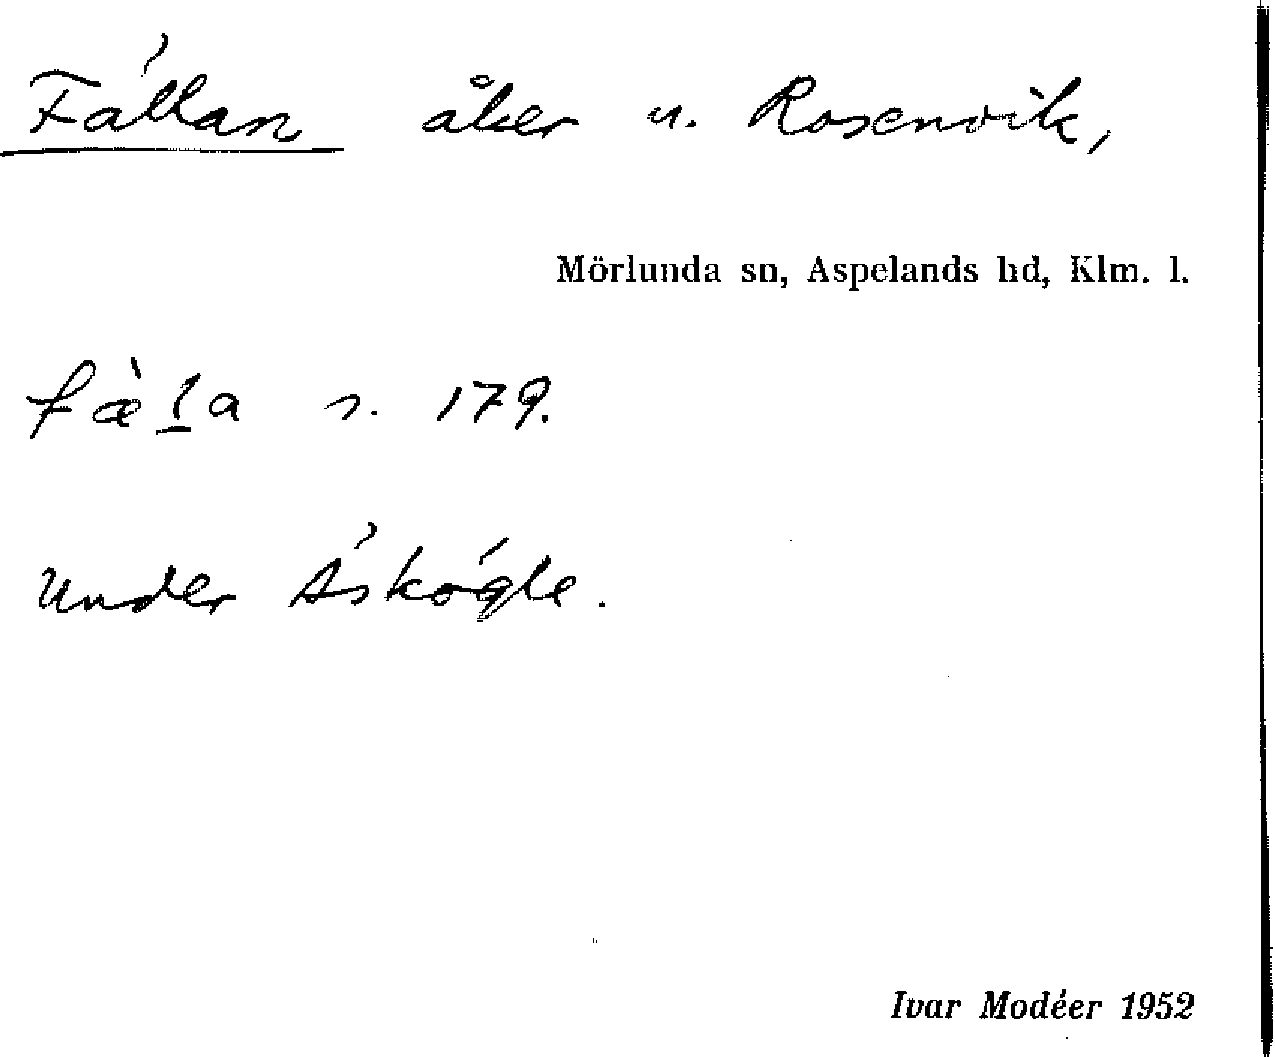 Fällan åker u. Rosenvik,
Mörlunda sn, Aspelands hd, Klm. l.
fæ̀l̲a s. 179.
Under Äskógle.
Ivar Modéer 1952